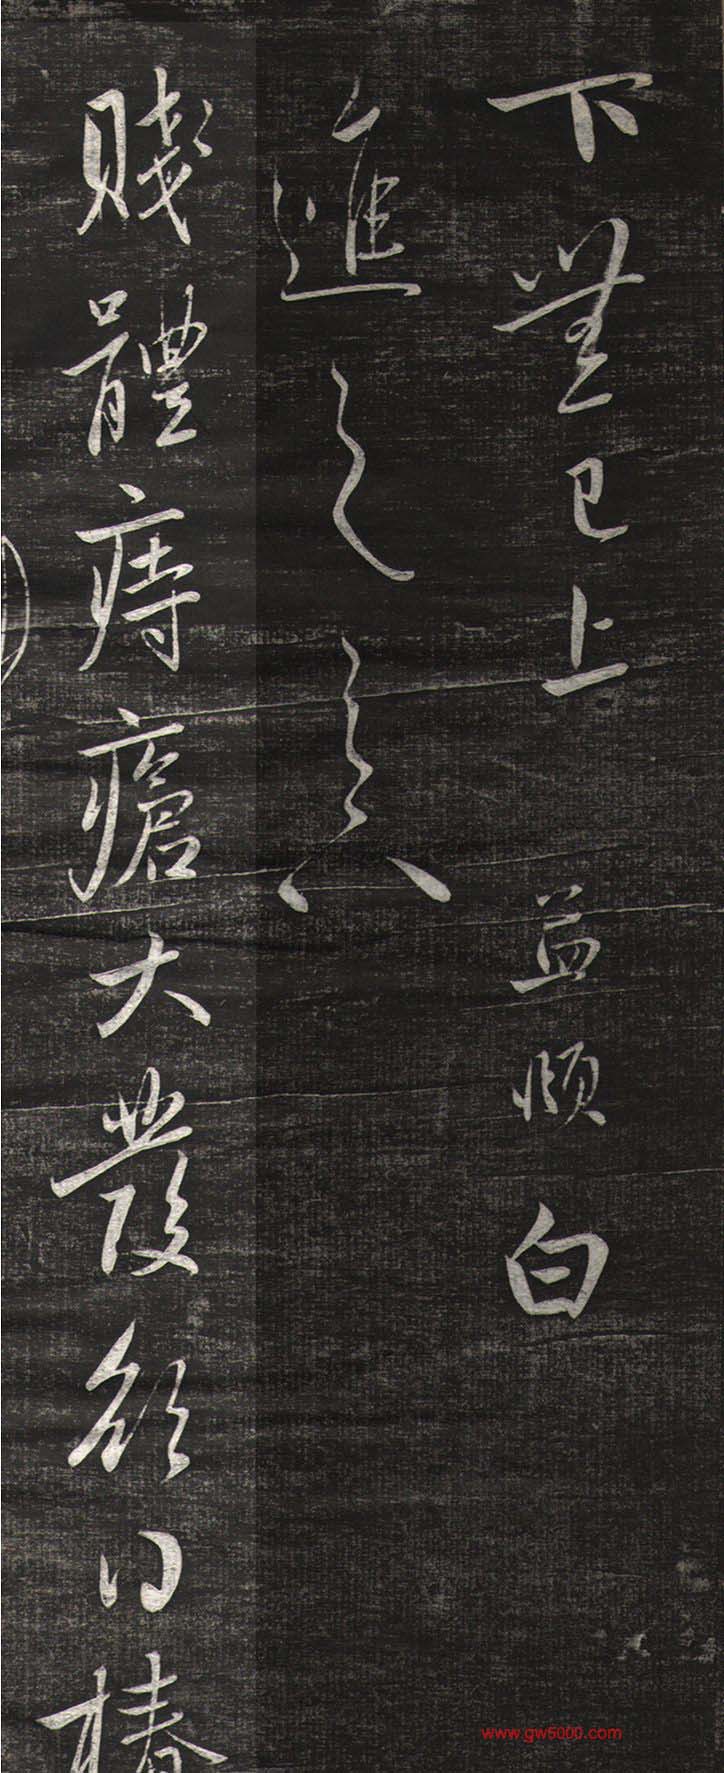 下無已上 益順白
進之真
賤體痔瘡大發欲日椿
www.gw5000.com